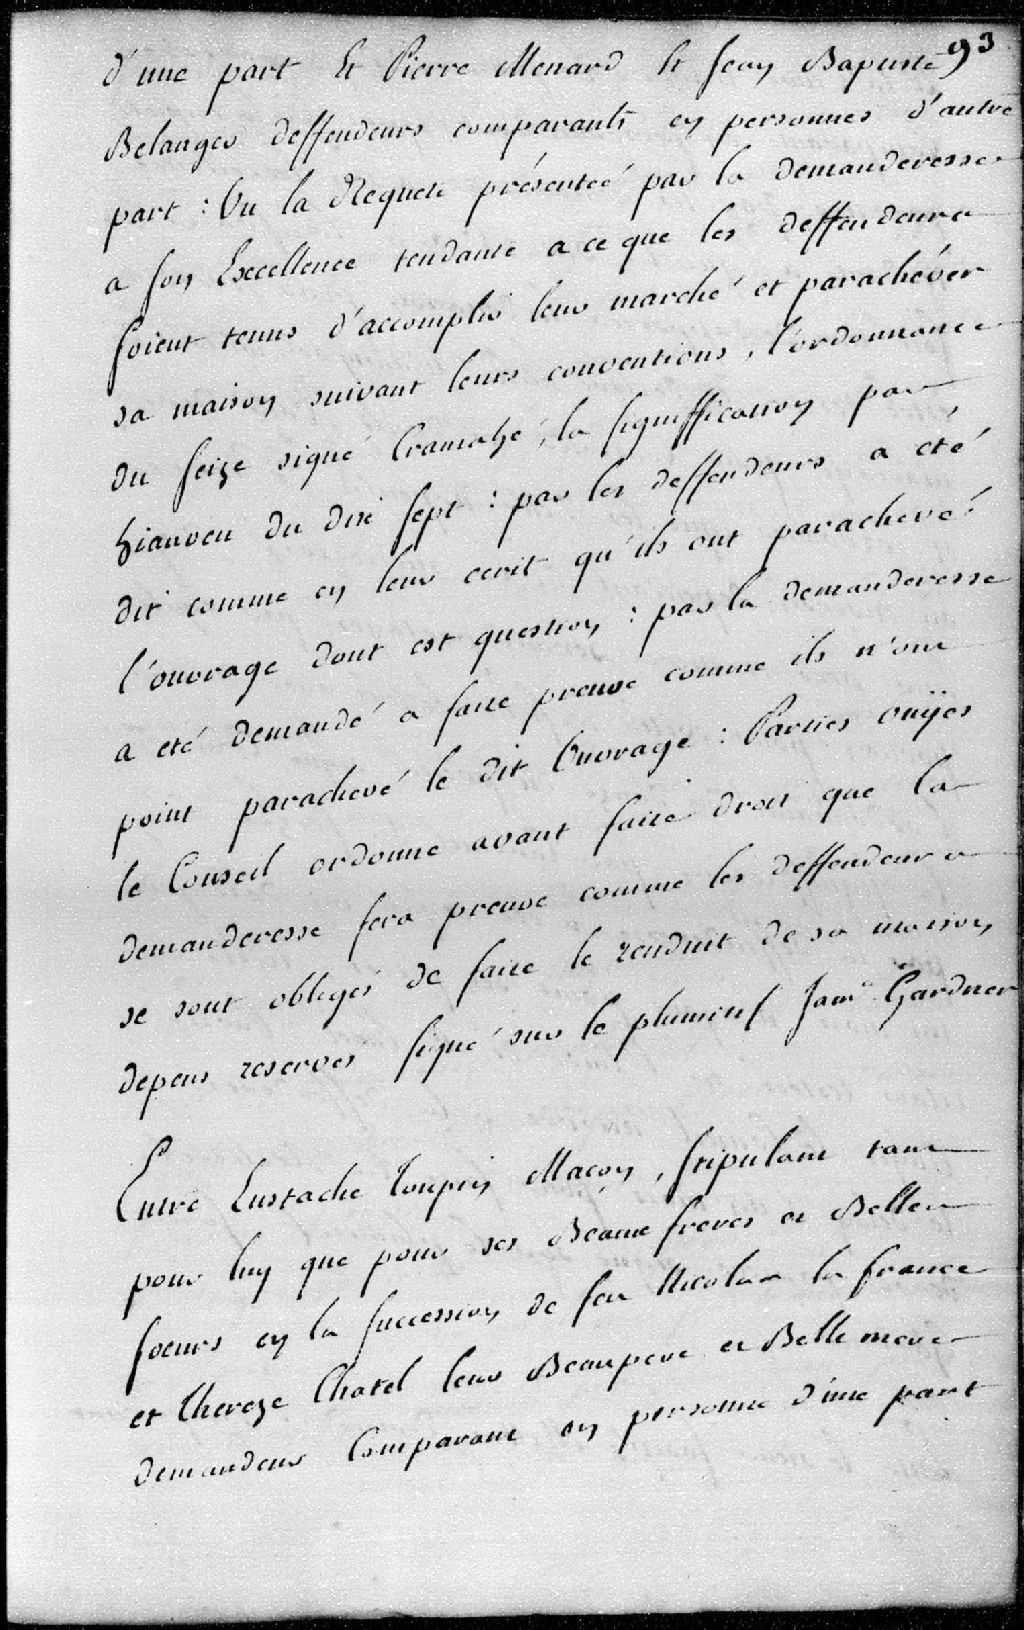 93
d'une part Et Pierre Menard et Jean Baptiste
Belanger deffendeurs comparants en personnes d'autre
part : Vu la Requete présenteé par la demanderesse
a son Excellence tendante a ce que les deffendeurs
soient tenus d'accomplir leur marché et parachéver
sa maison suivant leurs conventions, l'ordonnance
du seize signé Cramahé, la signiffication par
hianveu du dix sept : par les deffendeurs a été
dit comme en leur ecrit qu'ils ont paracheveé
l'ouvrage dont est question : par la demanderesse
a eté demandé a faire preuve comme ils n'ont
point parachevé le dit Ouvrage : Parties ouÿes
le Conseil ordonne avant faire droit que la
demanderesse fera preuve comme les deffendeurs
se sont obligés de faire le renduit de sa maison
depens reserves signé sur le plumitif Jam.s Gardner
Entre Eustache Toupin Macon, stipulant tant
pour luy que pour ses Beaux freres et Belles
soeurs en la succession de feu Nicolas la france
et Thereze Chatel leur Beaupere et Belle mere
demandeur Comparant en personne d'une part